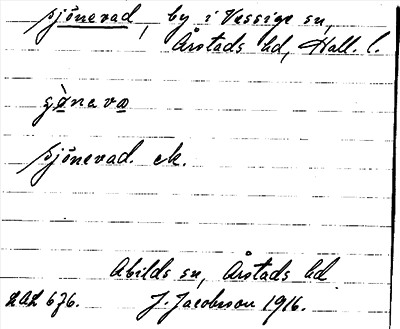 sjönevad, by i Vessige sn,
Årstads hd, Hall. l.
sjönevad. ek.
Abilds sn, Årstads hd
LAL 676. J. Jacobsson 1916.